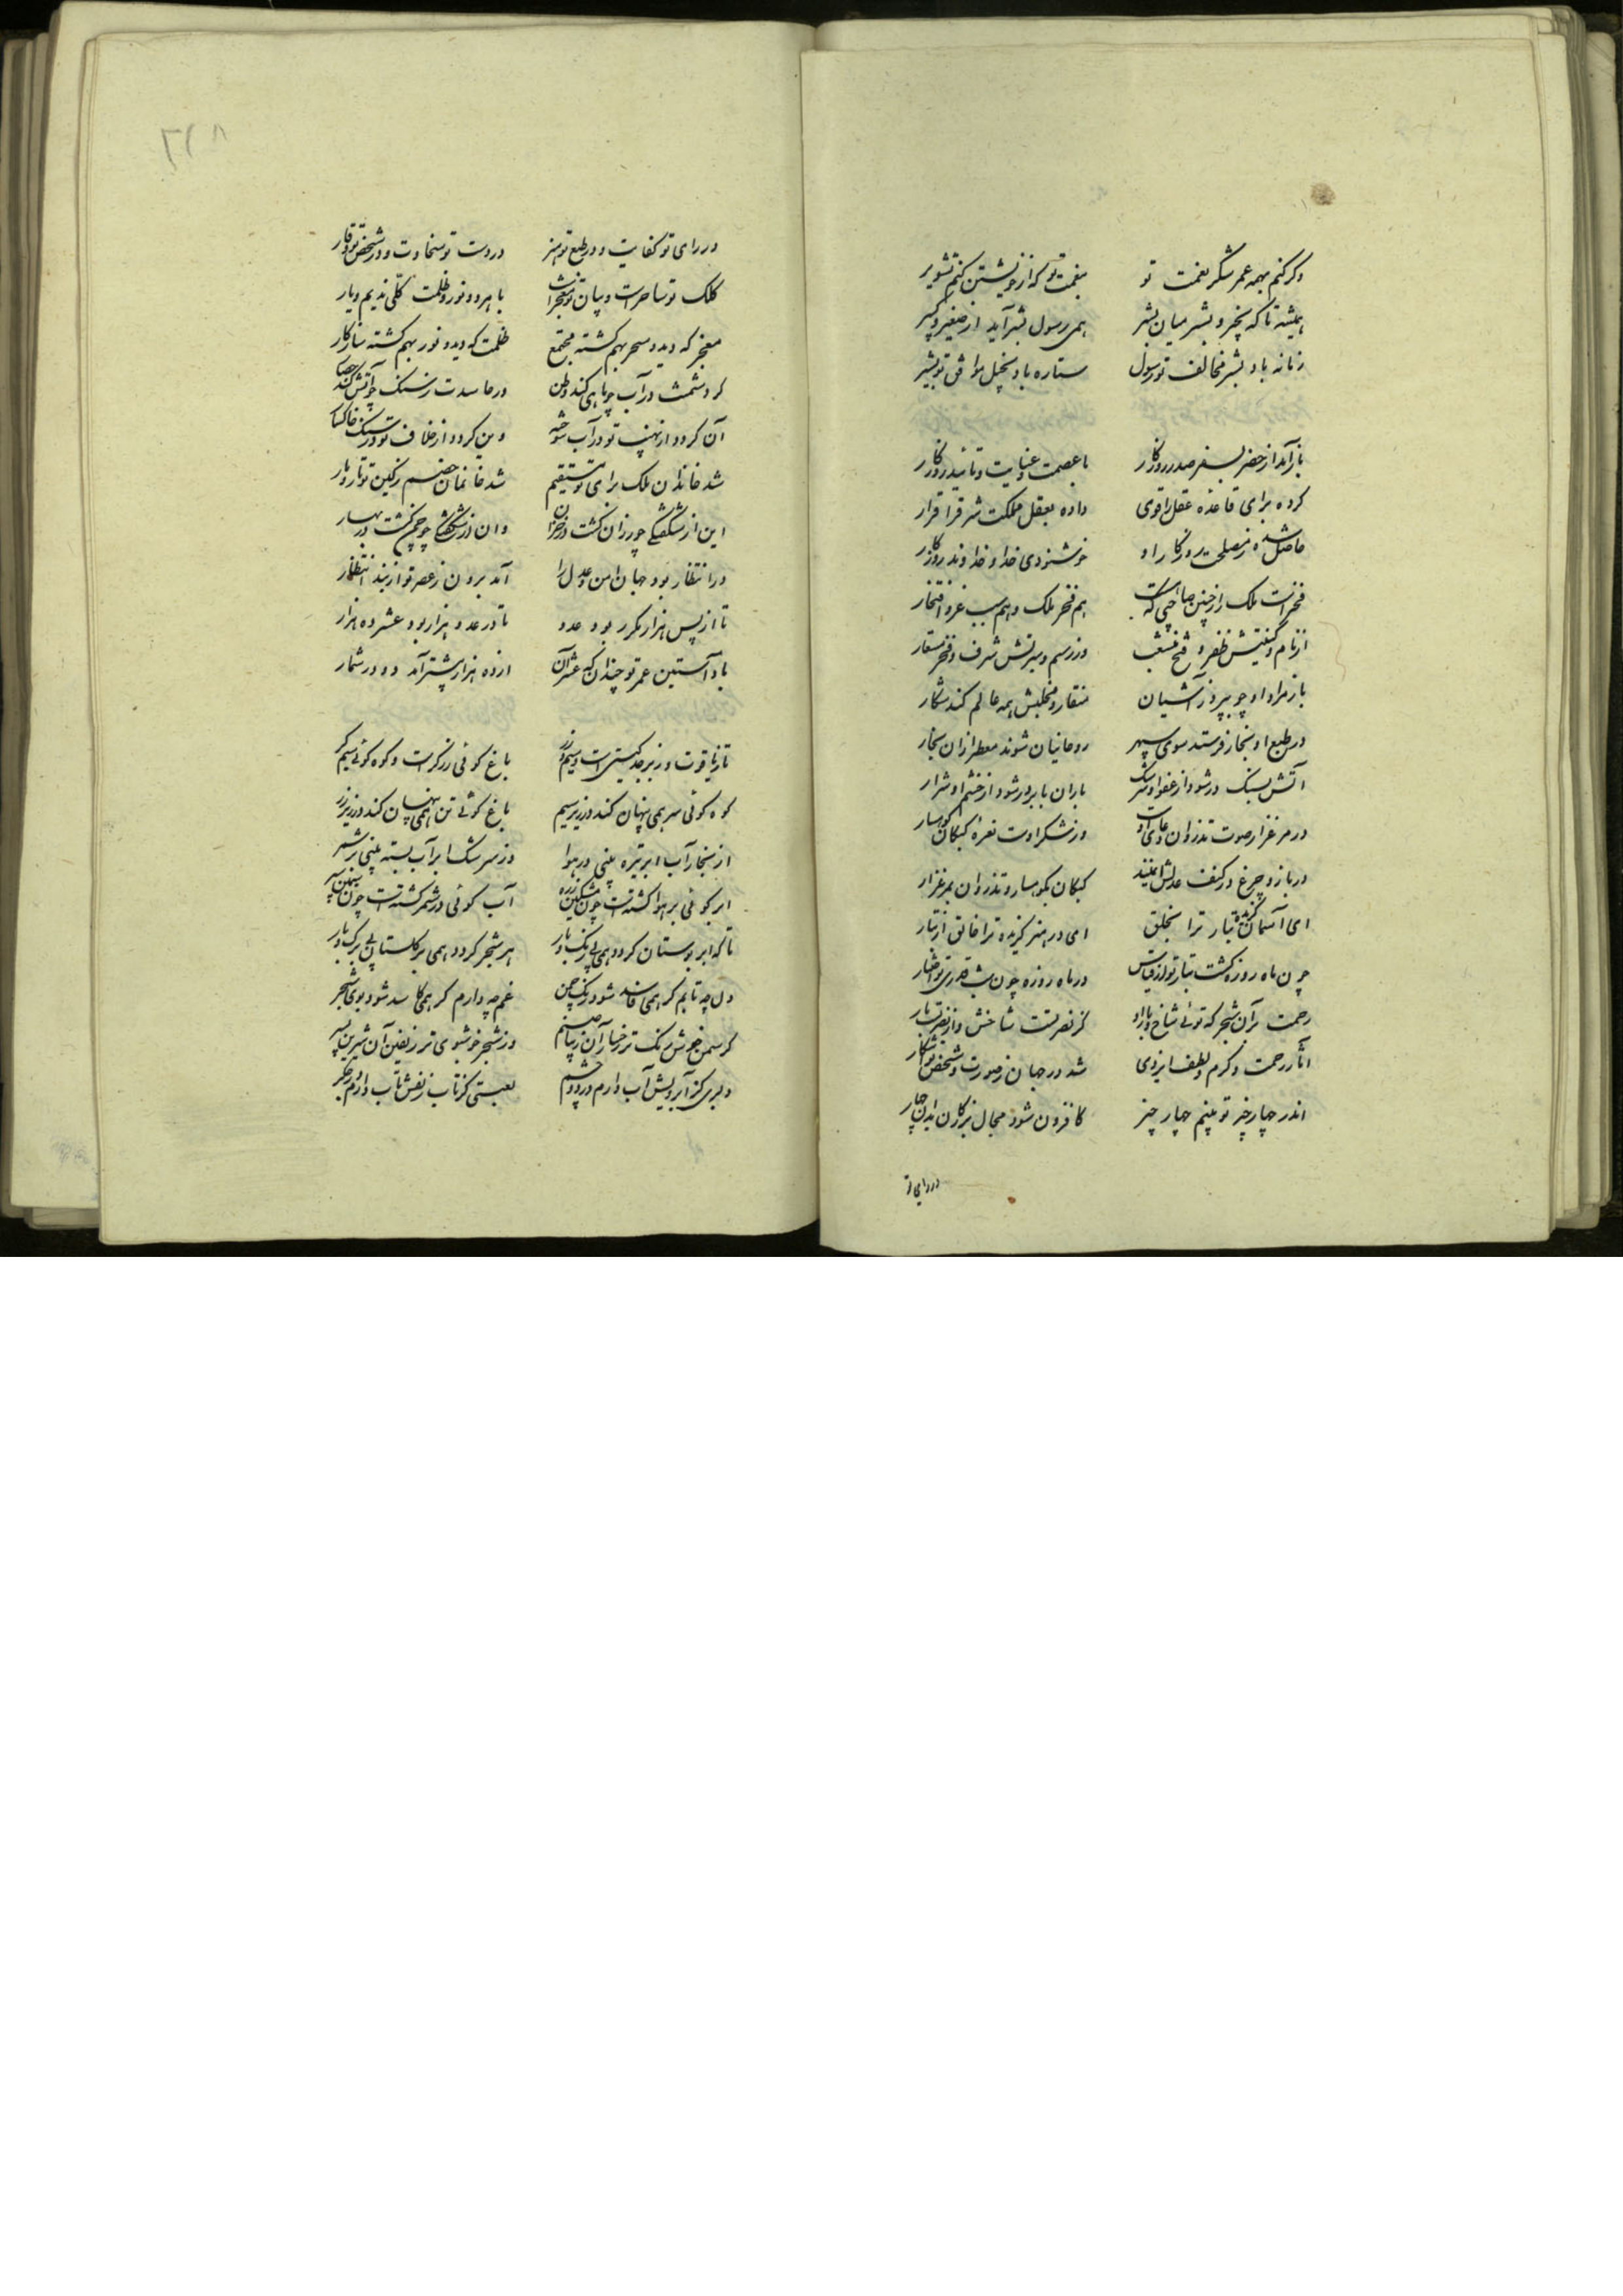 وکر کنم بهمه عمر شکر نعمت تو بنعمت تو که از خویشتن کنم تشویر
همیشه تا که بخیر و بشر میان بشر همی رسول بشر آید از صغیر و کبیر
زمانه باد بشر مخالف تو رسول ستاره باد بخیل موافق تو بشیر
باز آمد از حضر بسفر صدر روزکار با عصمت و عنایت و تائید روزکار
کرده برای قاعده عقل را قوی داده بعقل مملکت شرق را قرار
حاصل شده ز مصلحت روزکار او خوشنودی خدا و خداوند روزکار
فخر است ملک را ز چنین صاحبی که هست هم فخر ملک و هم سبب عز و افتخار
از نام و کنیتش ظفر و فتح منشعب وز رسم و سیرتش شرف و فخر مستعار
باز مراد او چو بپرد ز آشیان منقار و مخلبش همه عالم کند شکار
در طبع او بخار فرستد سوی سپهر روحانیان شوند معطر از ان بخار
آتش بسنک در شود از عفو او سرشک باران بابر در شود از خشم او شرار
در مرغزار صوت تذروان دعای اوست وز شکر اوست نعره کبکان کوهسار
در باز و چرغ در کنف عدلش ایمنند کبکان بکوهسار و تذروان بمرغزار
ای آسمان کزیده تبار ترا بخلق ای در هنر کزیده ترا خالق از تبار
چون ماه روزه کشت تبار تو از قیاس در ماه روزه چون شب قدری تو ز اختیار
رحمت بر آن شجر که توئی شاخ و بار او کز نصرتست شاخش و از نصرتست بار
آثار رحمت و کرم و لطف ایزدی شد در جهان ز صورت و شخص تو آشکار
اندر چهار چیز تو بینم چهار چیز کافزون شود مجال بزرکان بدان چهار
در رای تو
در رای تو کفایت و در طبع تو هنر در دست تو سخاوت و در شخص تو وقار
کلک تو ساحرست و بیان تو معجزات با هر دو نور و ظلمت کلی ندیم و یار
معجز که دید و سحر بهم کشته مجتمع ظلمت که دید و نور بهم کشته سازکار
کر دشمنت در آب چو ماهی کند وطن ور حاسدت ز سنک چو آتش کند حصار
آن کردد از نهیب تو در آب سوخته وین کردد از خلاف تو در سنک خاکسار
شد خاندان ملک برای تو مستقیم شد خانمان خصم ز کین تو تار و مار
این از شکفتکی چو رزان کشت در خزان وان از شکفتکی چو چمن کشت در بهار
در انتظار بود جهان امن و عدل را آمد برون ز عصر تو از بند انتظار
تا از پس هزار مکرر بود عدد تا در عدد هزار بود عشر ده هزار
باد آستین عمر تو چندان که عشر آن از ده هزار بیشتر آمد در شمار
تاز یاقوت و زبرجد کیستی است و سیم و زر باغ کوئی زرکر است و کوه کوئی سیمکر
کوه کوئی سر همی پنهان کند در زیر سیم باغ کوئی تن همی پنهان کند در زیر زر
از بخار آب ابر تیره بینی در هوا وز سرشک ابر آب بسته بینی بر شمر
ابر کوئی بر هوا کشتست چون مشکین زره آب کوئی در شمر کشتست چون سیمین سپر
تا که ابر بوستان کردد همی بی رنک و بار هر شجر کردد همی بر کلستان بی برک و بار
دل چه تابم کر همی فاسد شود رنک چمن غم چه دارم کر همی کاسد شود بوی شجر
کر سمن خوش رنک تر رخسار آن زیبا صنم وز شجر خوشبوی تر زلفین آن شیرین پسر
دلبری کز آب رویش آب دارم در دو چشم لعبتی کز تاب زلفش تاب دارم در جکر